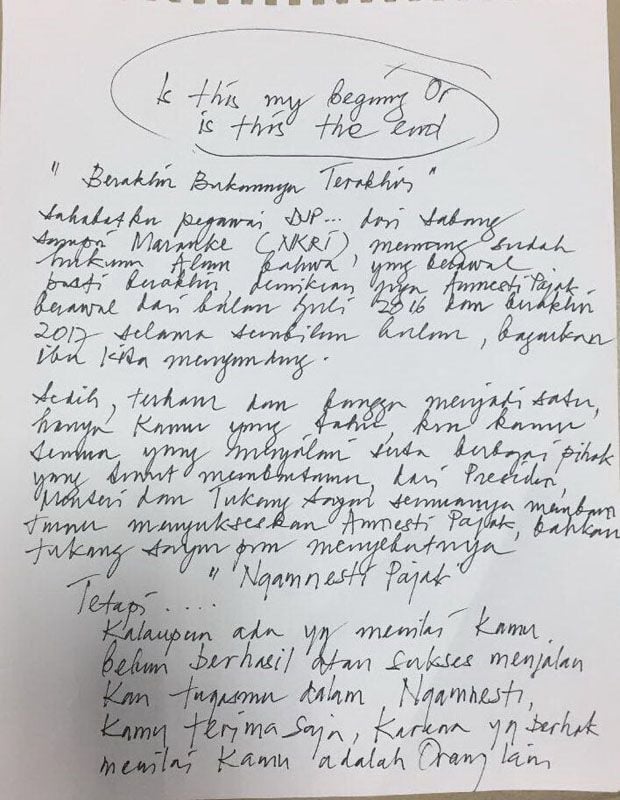 Is this my begining Or
is this the end
" Berakhir Bukannya Terakhir "
Sahabatku pegawai DJP... dari Sabang
sampai Marauke (NKRI), memang sudah
hukum Alam bahwa, yng berawal
pasti berakhir, demikian juga Amnesti Pajak
berawal dari bulan Juli 2016 dan berakhir
2017 selama sembilan bulan, bagaikan
ibu kita mengandung.
Sedih, terharu dan bangga menjadi satu,
hanya Kamu yang tahu, krn kamu
semua yang menjalani serta berbagai pihak
yang turut membantumu, dari Presiden,
Menteri dan Tukang Sayur semuanya memban
tumu menyukseskan Amnesti Pajak, bahkan
tukang sayur pun menyebutnya
" Ngamnesti Pajak "
Tetapi ....
Kalaupun ada yg menilai kamu
belum berhasil atau sukses menjalan
kan tugasmu dalam Ngamnesti,
Kamu terima saja, Karena yg berhak
menilai Kamu adalah Orang lain